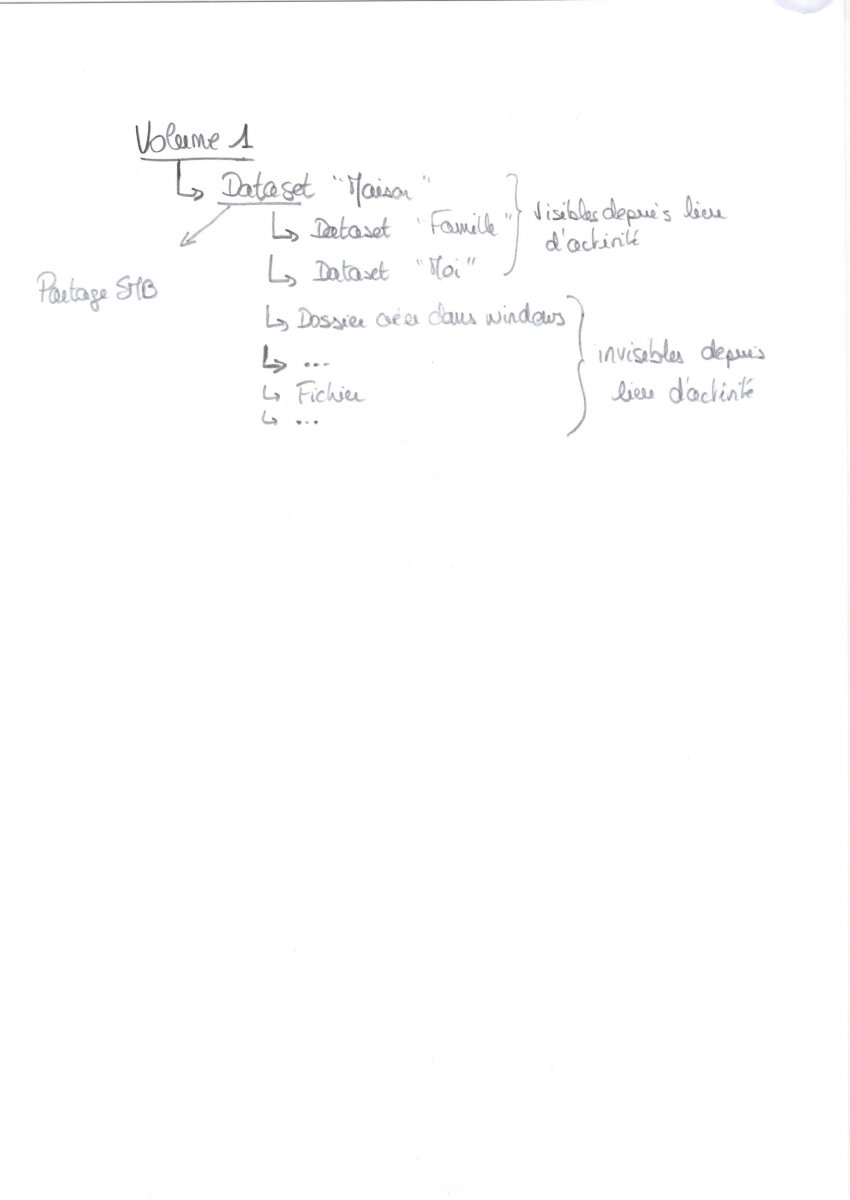 Volume 1
↳ Dataset "Maison"
↳ Dataset "Famille"
visibles depuis lieu
d'activité
↳ Dataset "Moi"
Partage SMB
↳ Dossier créer dans windows
↳ ...
invisibles depuis
lieu d'activité
↳ Fichier
↳ ...